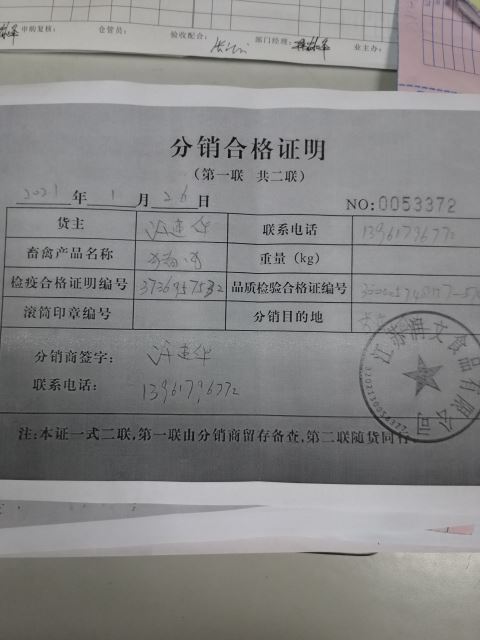 申购复核: 仓管员: 验收配合: 部门经理: 业主办:
分销合格证明
(第一联 共二联)
2021 年 1 月 26 日 NO:0053372
货主 联系电话 13961796772
畜禽产品名称 重量 (kg)
检疫合格证明编号 3736957532 品质检验合格证编号
滚筒印章编号 分销目的地
分销商签字:
联系电话: 13961796772
江苏润文食品有限公司
注:本证一式二联,第一联由分销商留存备查,第二联随货同行